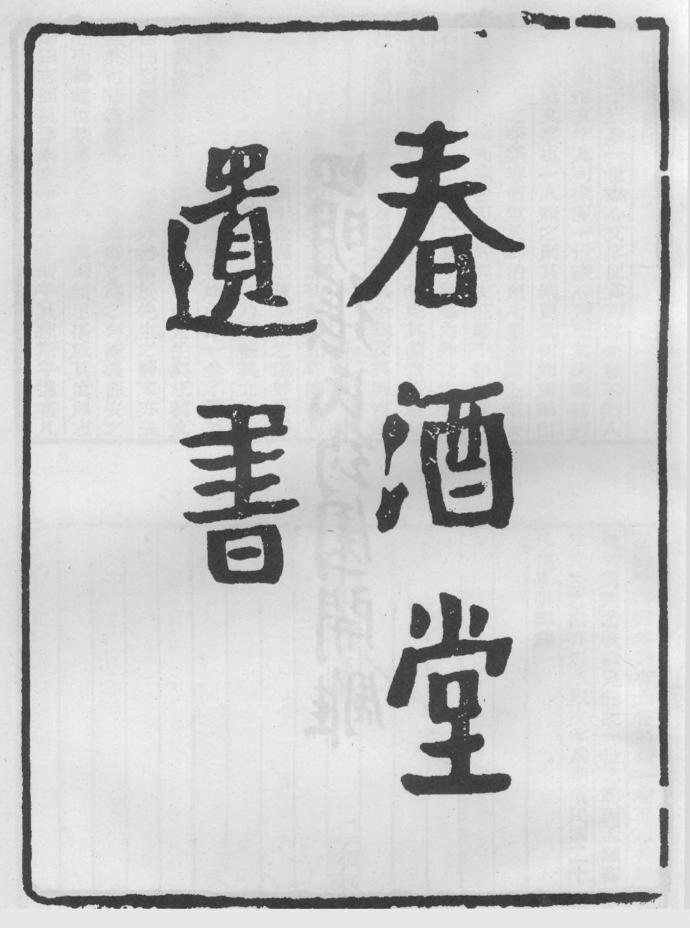 春酒堂
遺書